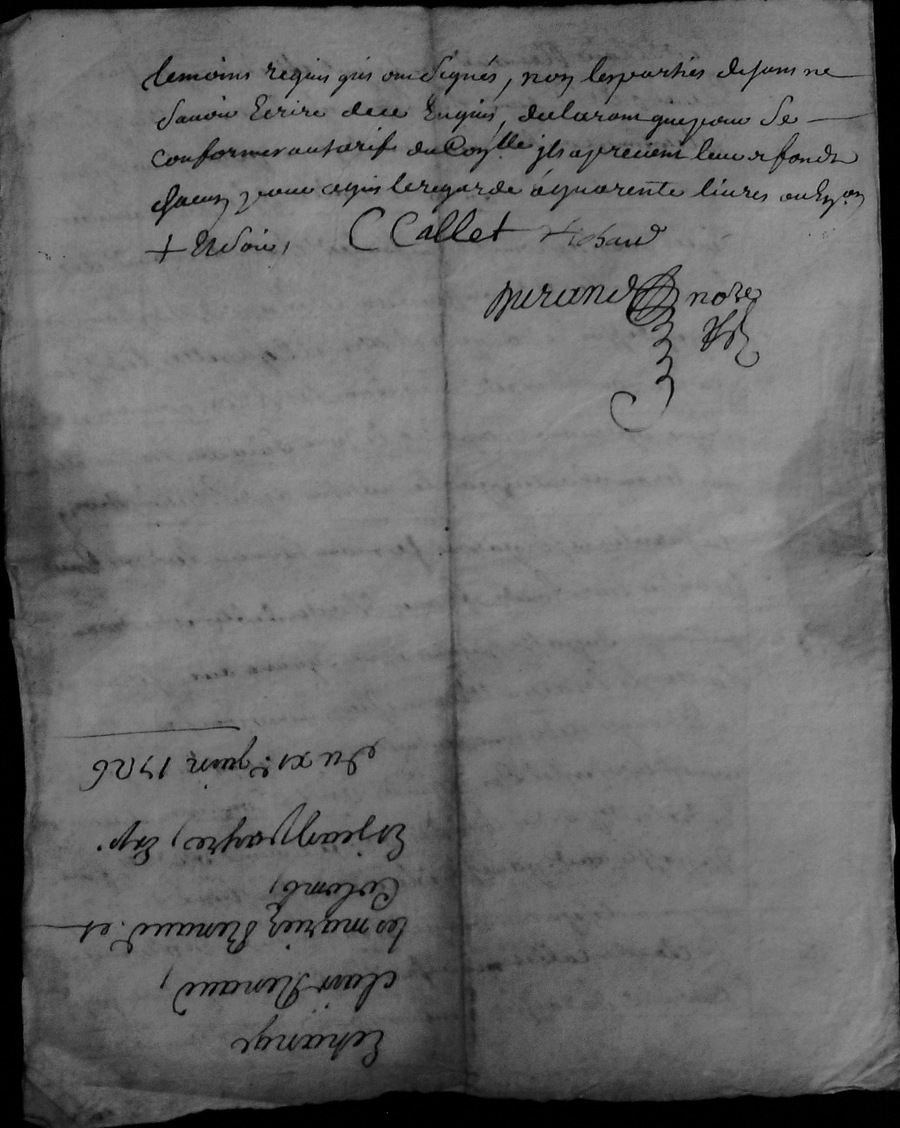 temoins requis qui ont signés, non les parties disant ne
Savoir Ecrire de ce Enquis, declarant que pour Se
conformer au tarif du Con.lle ils aprecient leurs fonds
chacun pour ce qui le regarde à quarente livres
+ Et Soit,
C Callet
Durand nore
Echange
clair Renaud,
les mariez Renaud et
Colomb,
Et jean payre, Exp.
du XI.e juin 1726